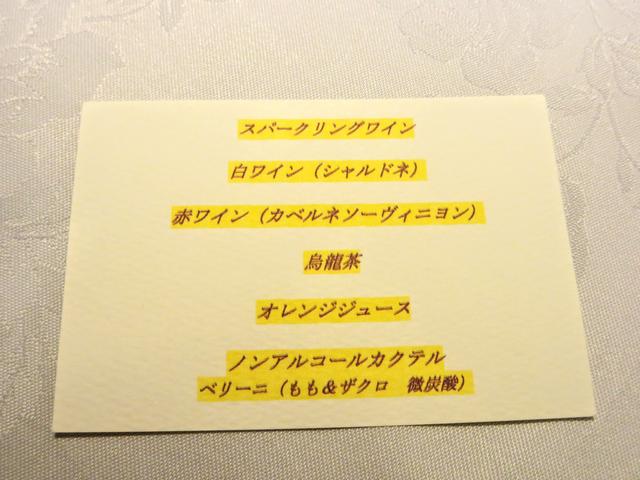 スパークリングワイン
白ワイン（シャルドネ）
赤ワイン（カベルネソーヴィニヨン）
烏龍茶
オレンジジュース
ノンアルコールカクテル
ベリーニ（もも＆ザクロ　微炭酸）